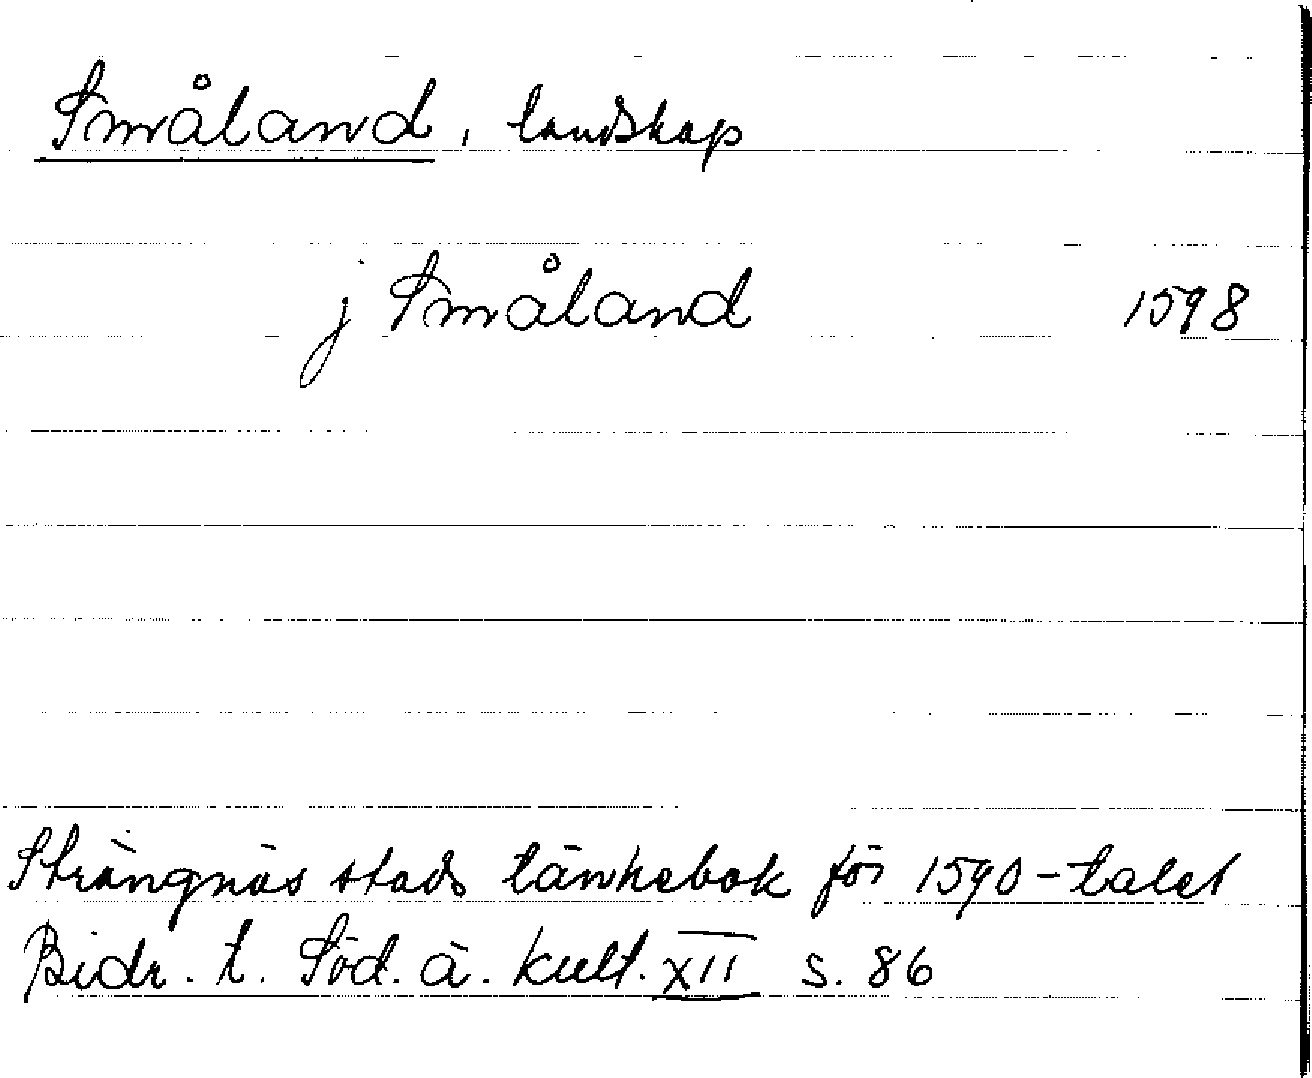 Småland, landskap
j Småland 1598
Strängnäs stads tänkebok för 1590-talet
Bidr. t. Söd. ä. kult. XII s. 86